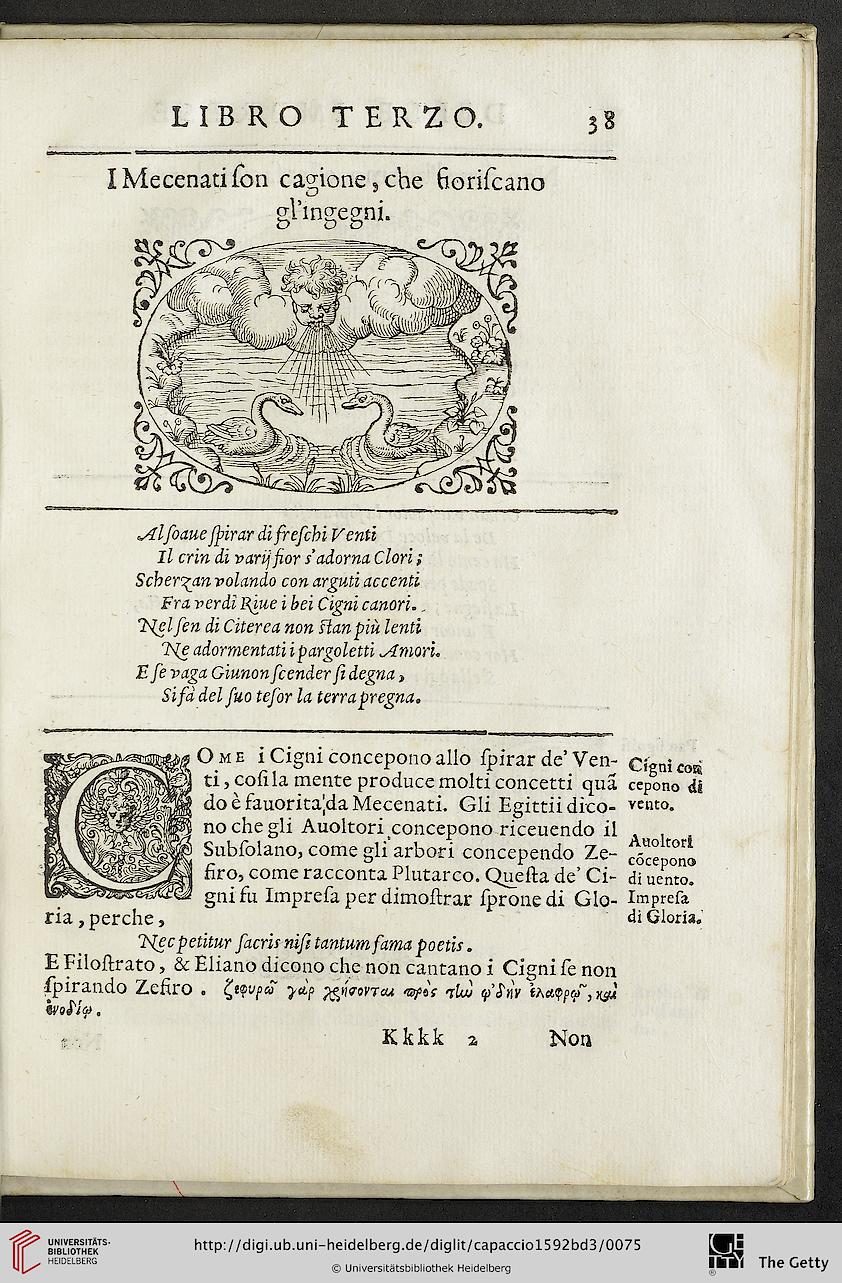 LIBRO TERZO. 38
I Mecenati ſon cagione, che fioriſcano
gl'ingegni.
Al ſoaue ſpirar di freſchi Venti
Il crin di varij fior s'adorna Clori;
Scherzan volando con arguti accenti
Fra verdi Riue i bei Cigni canori.
Nel ſen di Citerea non ſtan più lenti
Ne adormentati i pargoletti Amori.
E ſe vaga Giunon ſcender ſi degna,
Si fà del ſuo teſor la terra pregna.
COME i Cigni concepono allo ſpirar de' Ven-
ti, coſi la mente produce molti concetti quã
do è fauorita da Mecenati. Gli Egittii dico-
no che gli Auoltori concepono riceuendo il
Subſolano, come gli arbori concependo Ze-
firo, come racconta Plutarco. Queſta de' Ci-
gni fu Impreſa per dimoſtrar ſprone di Glo-
ria, perche,
Cigni con
cepono di
vento.
Auoltori
cõcepono
di uento.
Impreſa
di Gloria.
Nec petitur ſacris niſi tantum fama poetis.
E Filoſtrato, & Eliano dicono che non cantano i Cigni ſe non
ſpirando Zefiro. ζεφυρῶ γὰρ χρήσονται πρὸς τὴν ᾠδὴν ἐλαφρῷ, καὶ
Kkkk 2 Non
UNIVERSITÄTS-
BIBLIOTHEK
HEIDELBERG
http://digi.ub.uni-heidelberg.de/diglit/capaccio1592bd3/0075
© Universitätsbibliothek Heidelberg
GETTY
®
The Getty